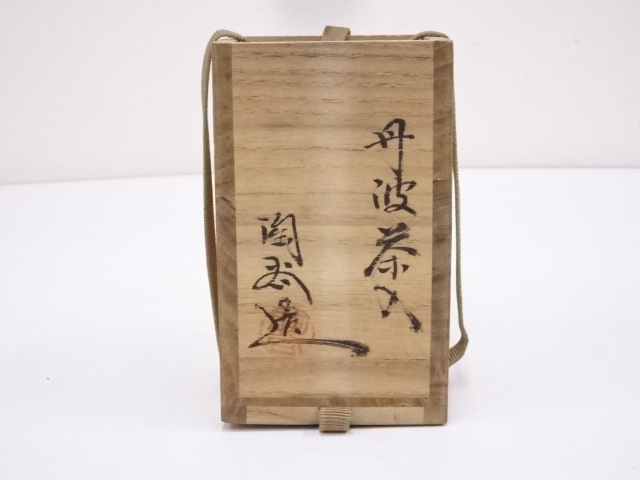 丹波茶入
陶武造